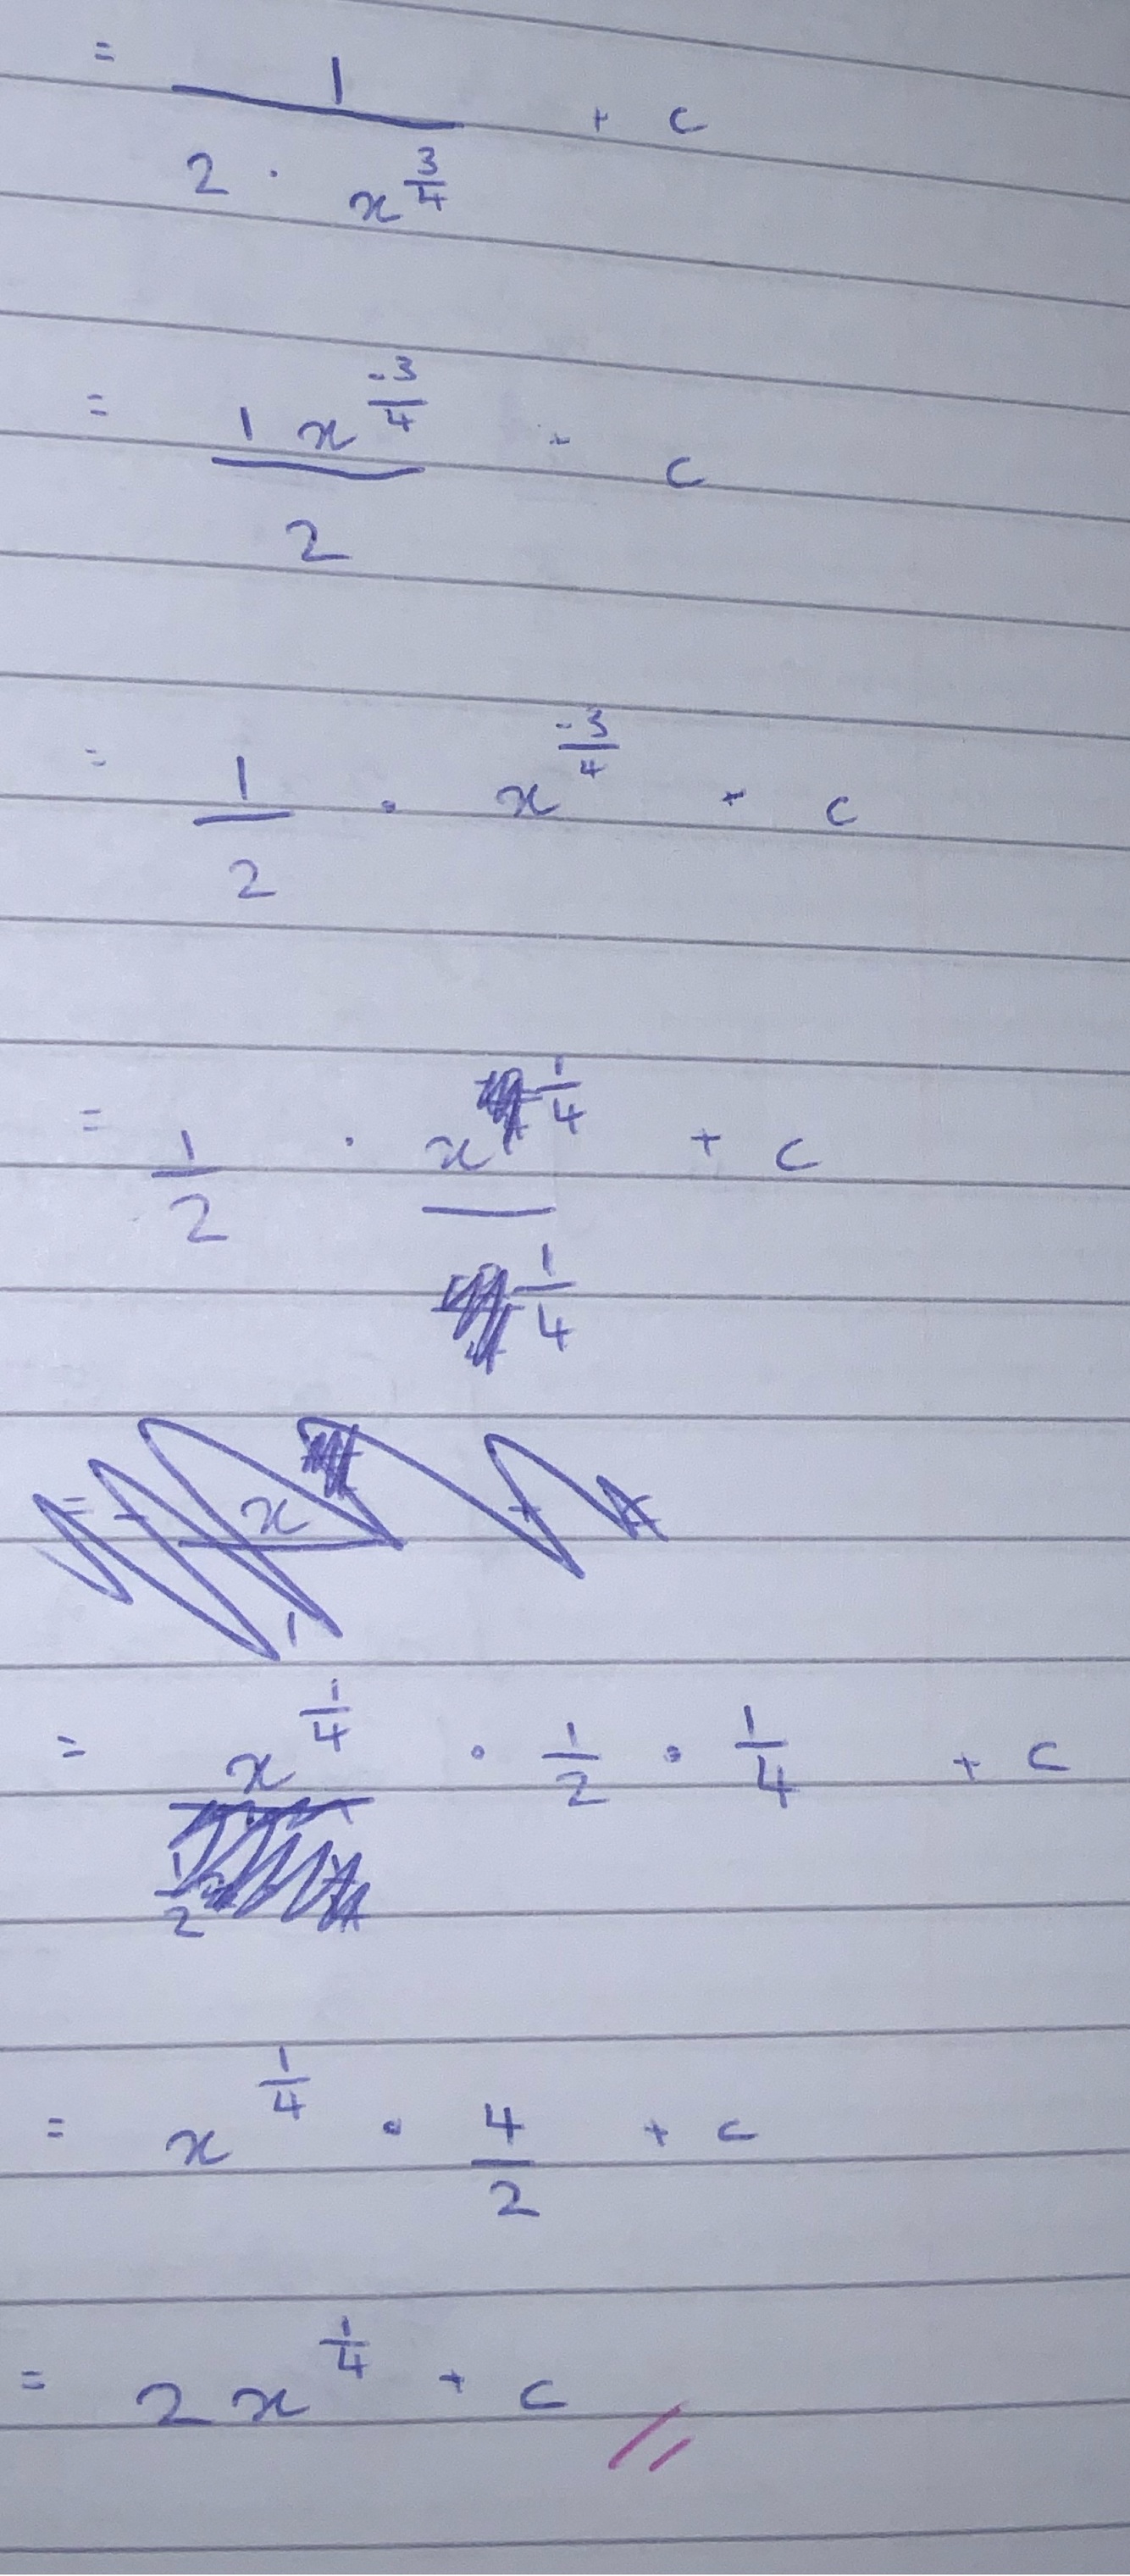 = 1 / (2 · x^(3/4)) + c
= (1 x^(-3/4)) / 2 + c
= 1/2 · x^(-3/4) + c
= 1/2 · x^(1/4) / (1/4) + c
= x^(1/4) · 1/2 · 1/4 + c
= x^(1/4) · 4/2 + c
= 2x^(1/4) + c //